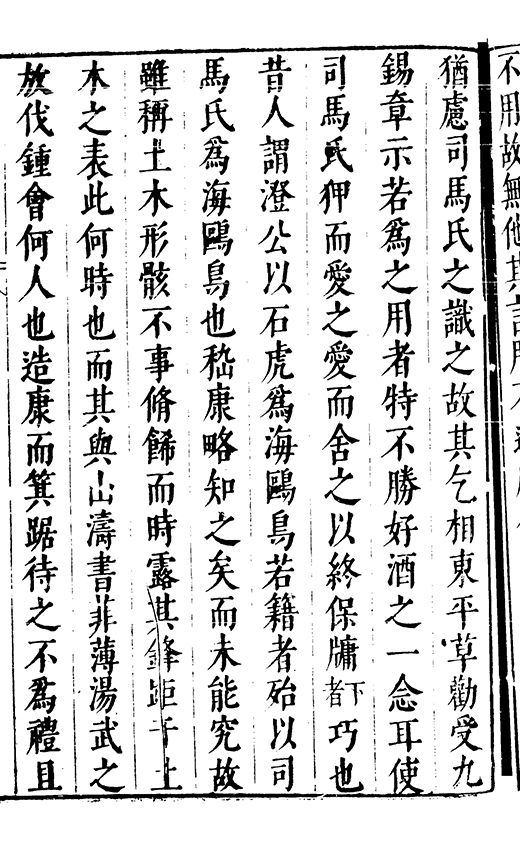 不用故無他其
猶慮司馬氏之識之故其乞相東平草勸受九
錫章示若爲之用者特不勝好酒之一念耳使
司馬氏狎而愛之愛而舍之以終保牖下者巧也
昔人謂澄公以石虎爲海鷗鳥若籍者殆以司
馬氏爲海鷗鳥也嵇康略知之矣而未能究故
雖稱土木形骸不事脩餙而時露其鋒距于土
木之表此何時也而其與山濤書菲薄湯武之
放伐鍾會何人也造康而箕踞待之不爲禮且